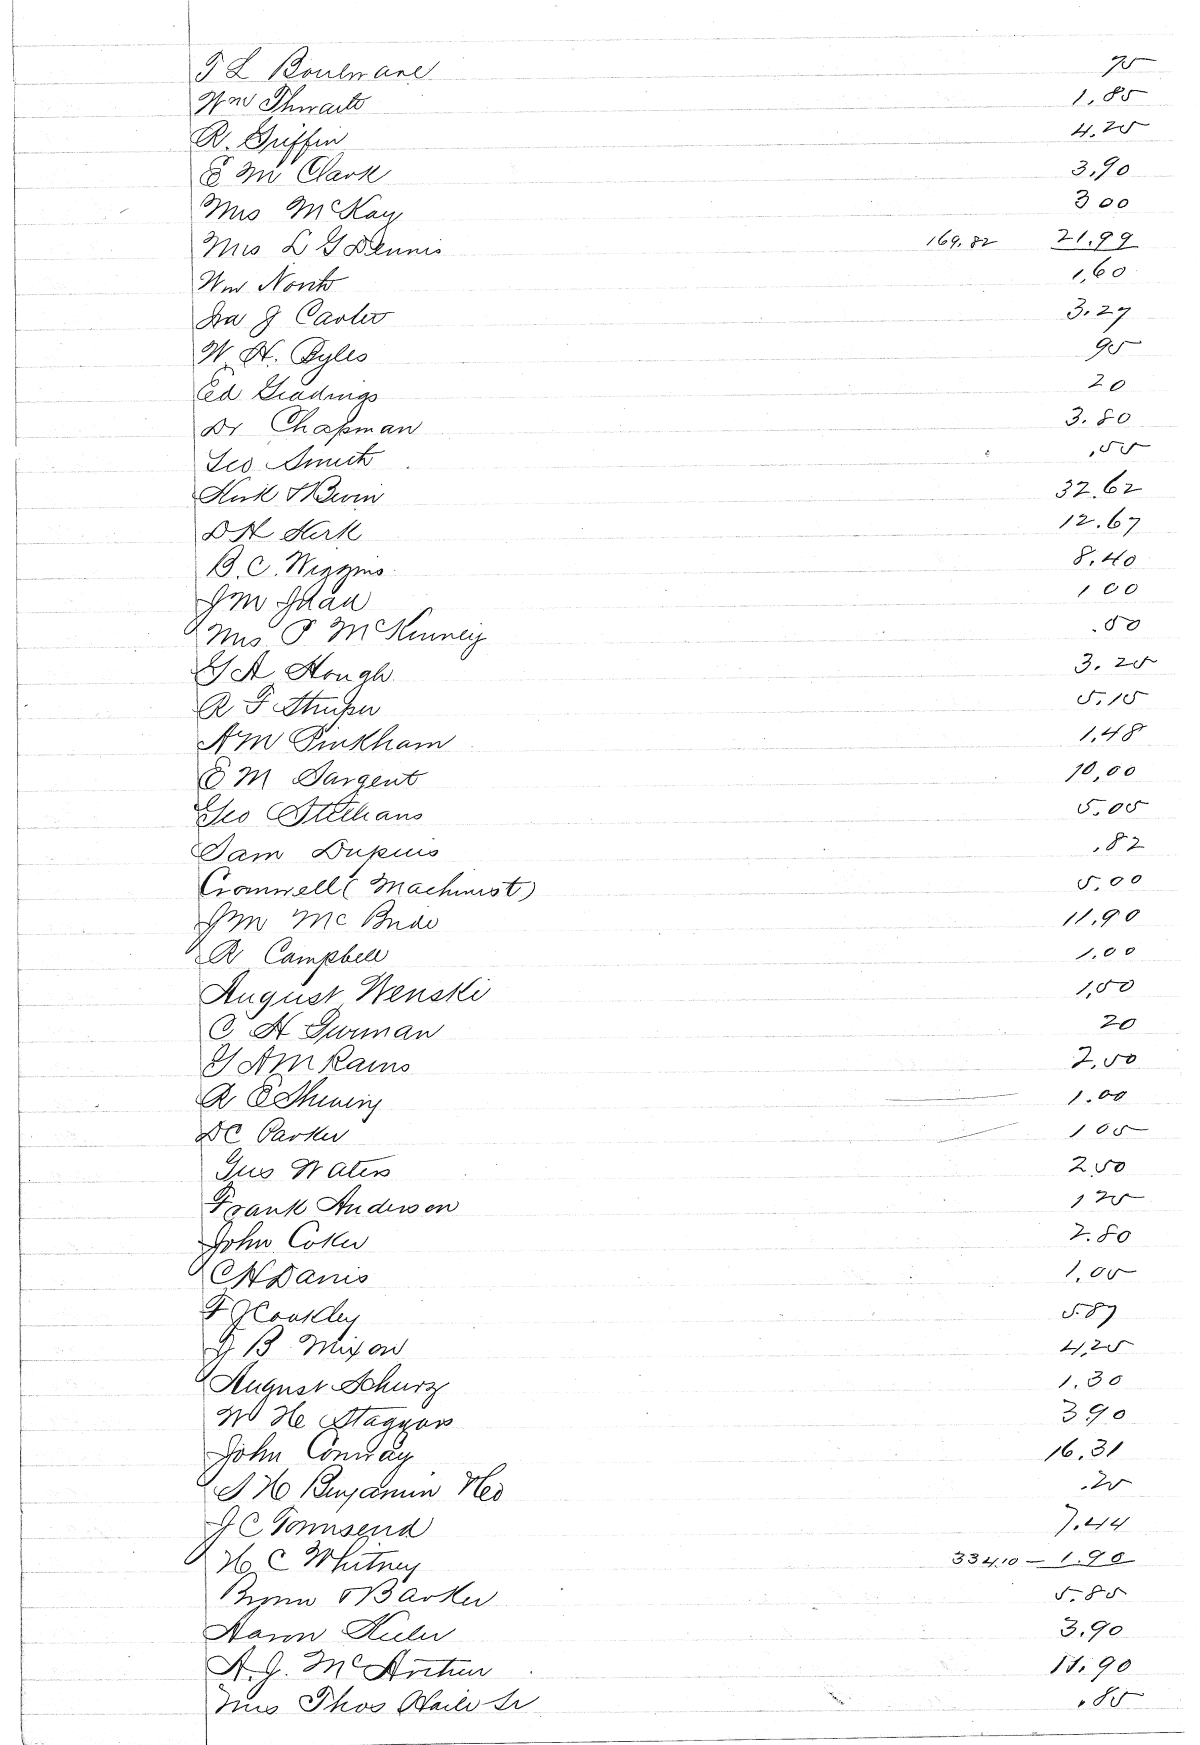 T L Boulware 75
Wm Thwaits 1.85
R. Griffin 4.25
E M Clark 3.90
Mrs McKay 3 00
Mrs L G Dennis 169.82 21.99
Wm North 1,60
Ira J Carter 3.27
W. H. Pyles 95
Ed Geadings 20
Dr Chapman 3.80
Geo Smith .55
Kirk & Bevin 32.62
D H Kirk 12.67
B. C. Wiggins 8.40
J M 1 00
Mrs P McKinney .50
G A Hough 3.25
R F 5.15
A M Pinkham 1.48
E M Sargent 10,00
Geo 5.05
Sam Dupuis .82
Cromwell (Machinist) 5.00
J M McBride 11.90
R Campbell 1.00
August Wenski 1,50
C H Furman 20
G A M Rains 2,50
R E 1.00
D C Parker 1 05
Gus Waters 2.50
Frank Anderson 1 25
John Coker 2.80
C H Davis 1.05
F J Coakley 5.87
J B Mixon 4,25
August Schurz 1.30
W He Staggers 3 90
John Conway 16.31
S H Benjamin .25
J C Townsend 7.44
H C Whitney 334.10 - 1.90
& Barker 5.85
Aaron 3.90
A. J. McArthur 11.90
Mrs Thos Haile Sr .85